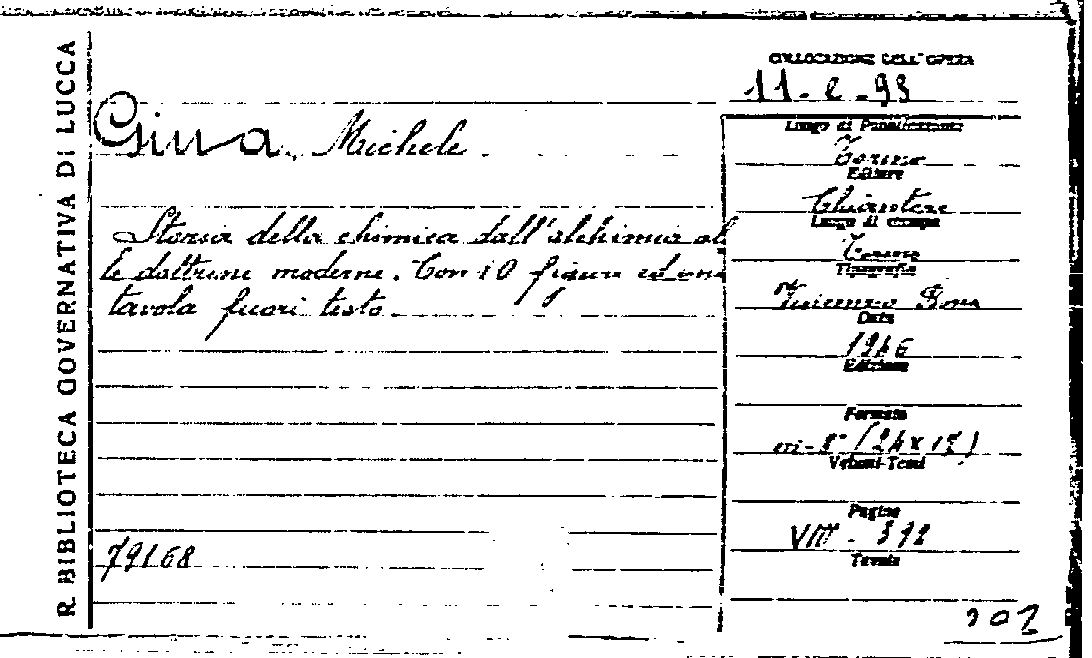 R. BIBLIOTECA GOVERNATIVA DI LUCCA
COLLOCAZIONE DELL'OPERA
11-e-93
Giua, Michele
Storia della chimica dall'alchimia al
le dottrine moderne. Con 10 figure ed una
tavola fuori testo.
79168
Luogo di Pubblicazione
Torino
Editore
Chiantore
Luogo di stampa
Torino
Tipografia
Vincenzo Bona
Data
1946
Edizione
Formato
in-8° (24x17)
Volumi-Tomi
Pagine
VIII - 392
Tavole